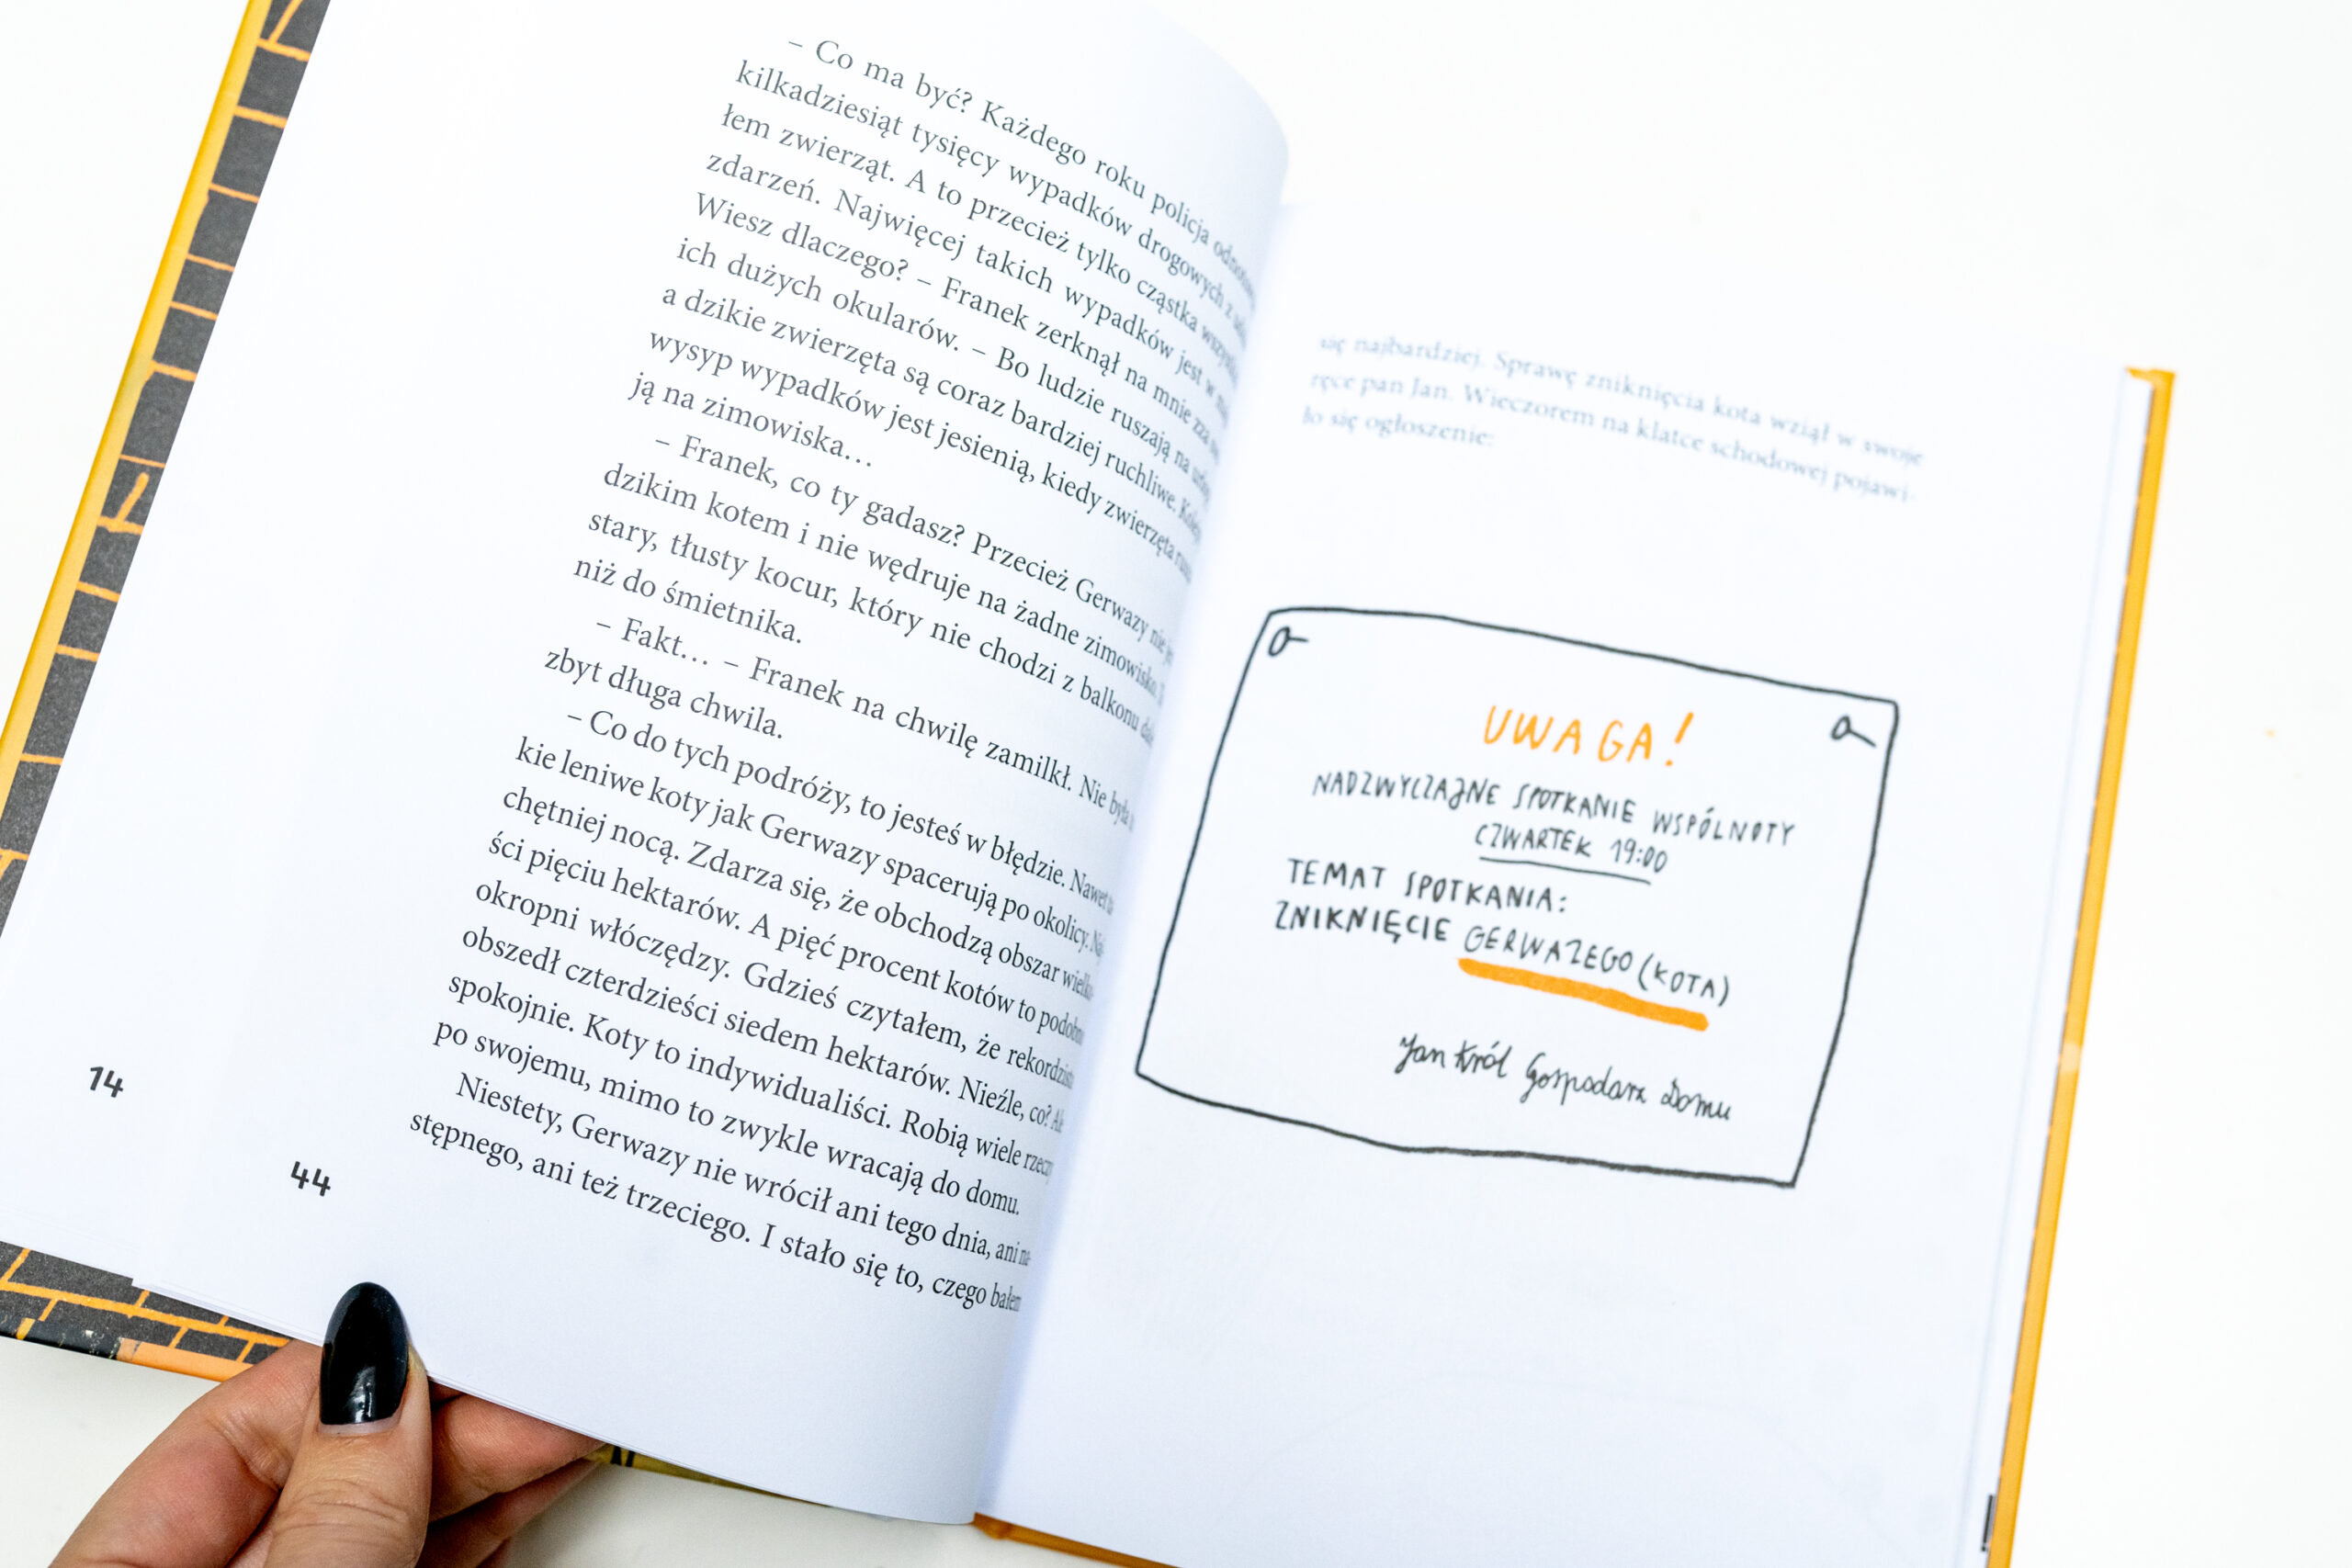 – Co ma być? Każdego roku policja
kilkadziesiąt tysięcy wypadków drogowych z
łem zwierząt. A to przecież tylko cząstka
zdarzeń. Najwięcej takich wypadków jest w
Wiesz dlaczego? – Franek zerknął na mnie zza
ich dużych okularów. – Bo ludzie ruszają na
a dzikie zwierzęta są coraz bardziej ruchliwe.
wysyp wypadków jest jesienią, kiedy zwierzęta
ją na zimowiska…
– Franek, co ty gadasz? Przecież Gerwazy nie
dzikim kotem i nie wędruje na żadne zimowisko.
stary, tłusty kocur, który nie chodzi z balkonu
niż do śmietnika.
– Fakt… – Franek na chwilę zamilkł. Nie była
zbyt długa chwila.
– Co do tych podróży, to jesteś w błędzie. Nawet
kie leniwe koty jak Gerwazy spacerują po okolicy.
chętniej nocą. Zdarza się, że obchodzą obszar
ści pięciu hektarów. A pięć procent kotów to podobno
okropni włóczędzy. Gdzieś czytałem, że rekordzista
obszedł czterdzieści siedem hektarów. Nieźle, co?
spokojnie. Koty to indywidualiści. Robią wiele rzeczy
po swojemu, mimo to zwykle wracają do domu.
Niestety, Gerwazy nie wrócił ani tego dnia, ani na-
stępnego, ani też trzeciego. I stało się to, czego bałem
14
44
się najbardziej. Sprawę zniknięcia kota wziął w swoje
ręce pan Jan. Wieczorem na klatce schodowej pojawi-
ło się ogłoszenie:
UWAGA!
NADZWYCZAJNE SPOTKANIE WSPÓLNOTY
CZWARTEK 19:00
TEMAT SPOTKANIA:
ZNIKNIĘCIE GERWAZEGO (KOTA)
Jan Król Gospodarz Domu